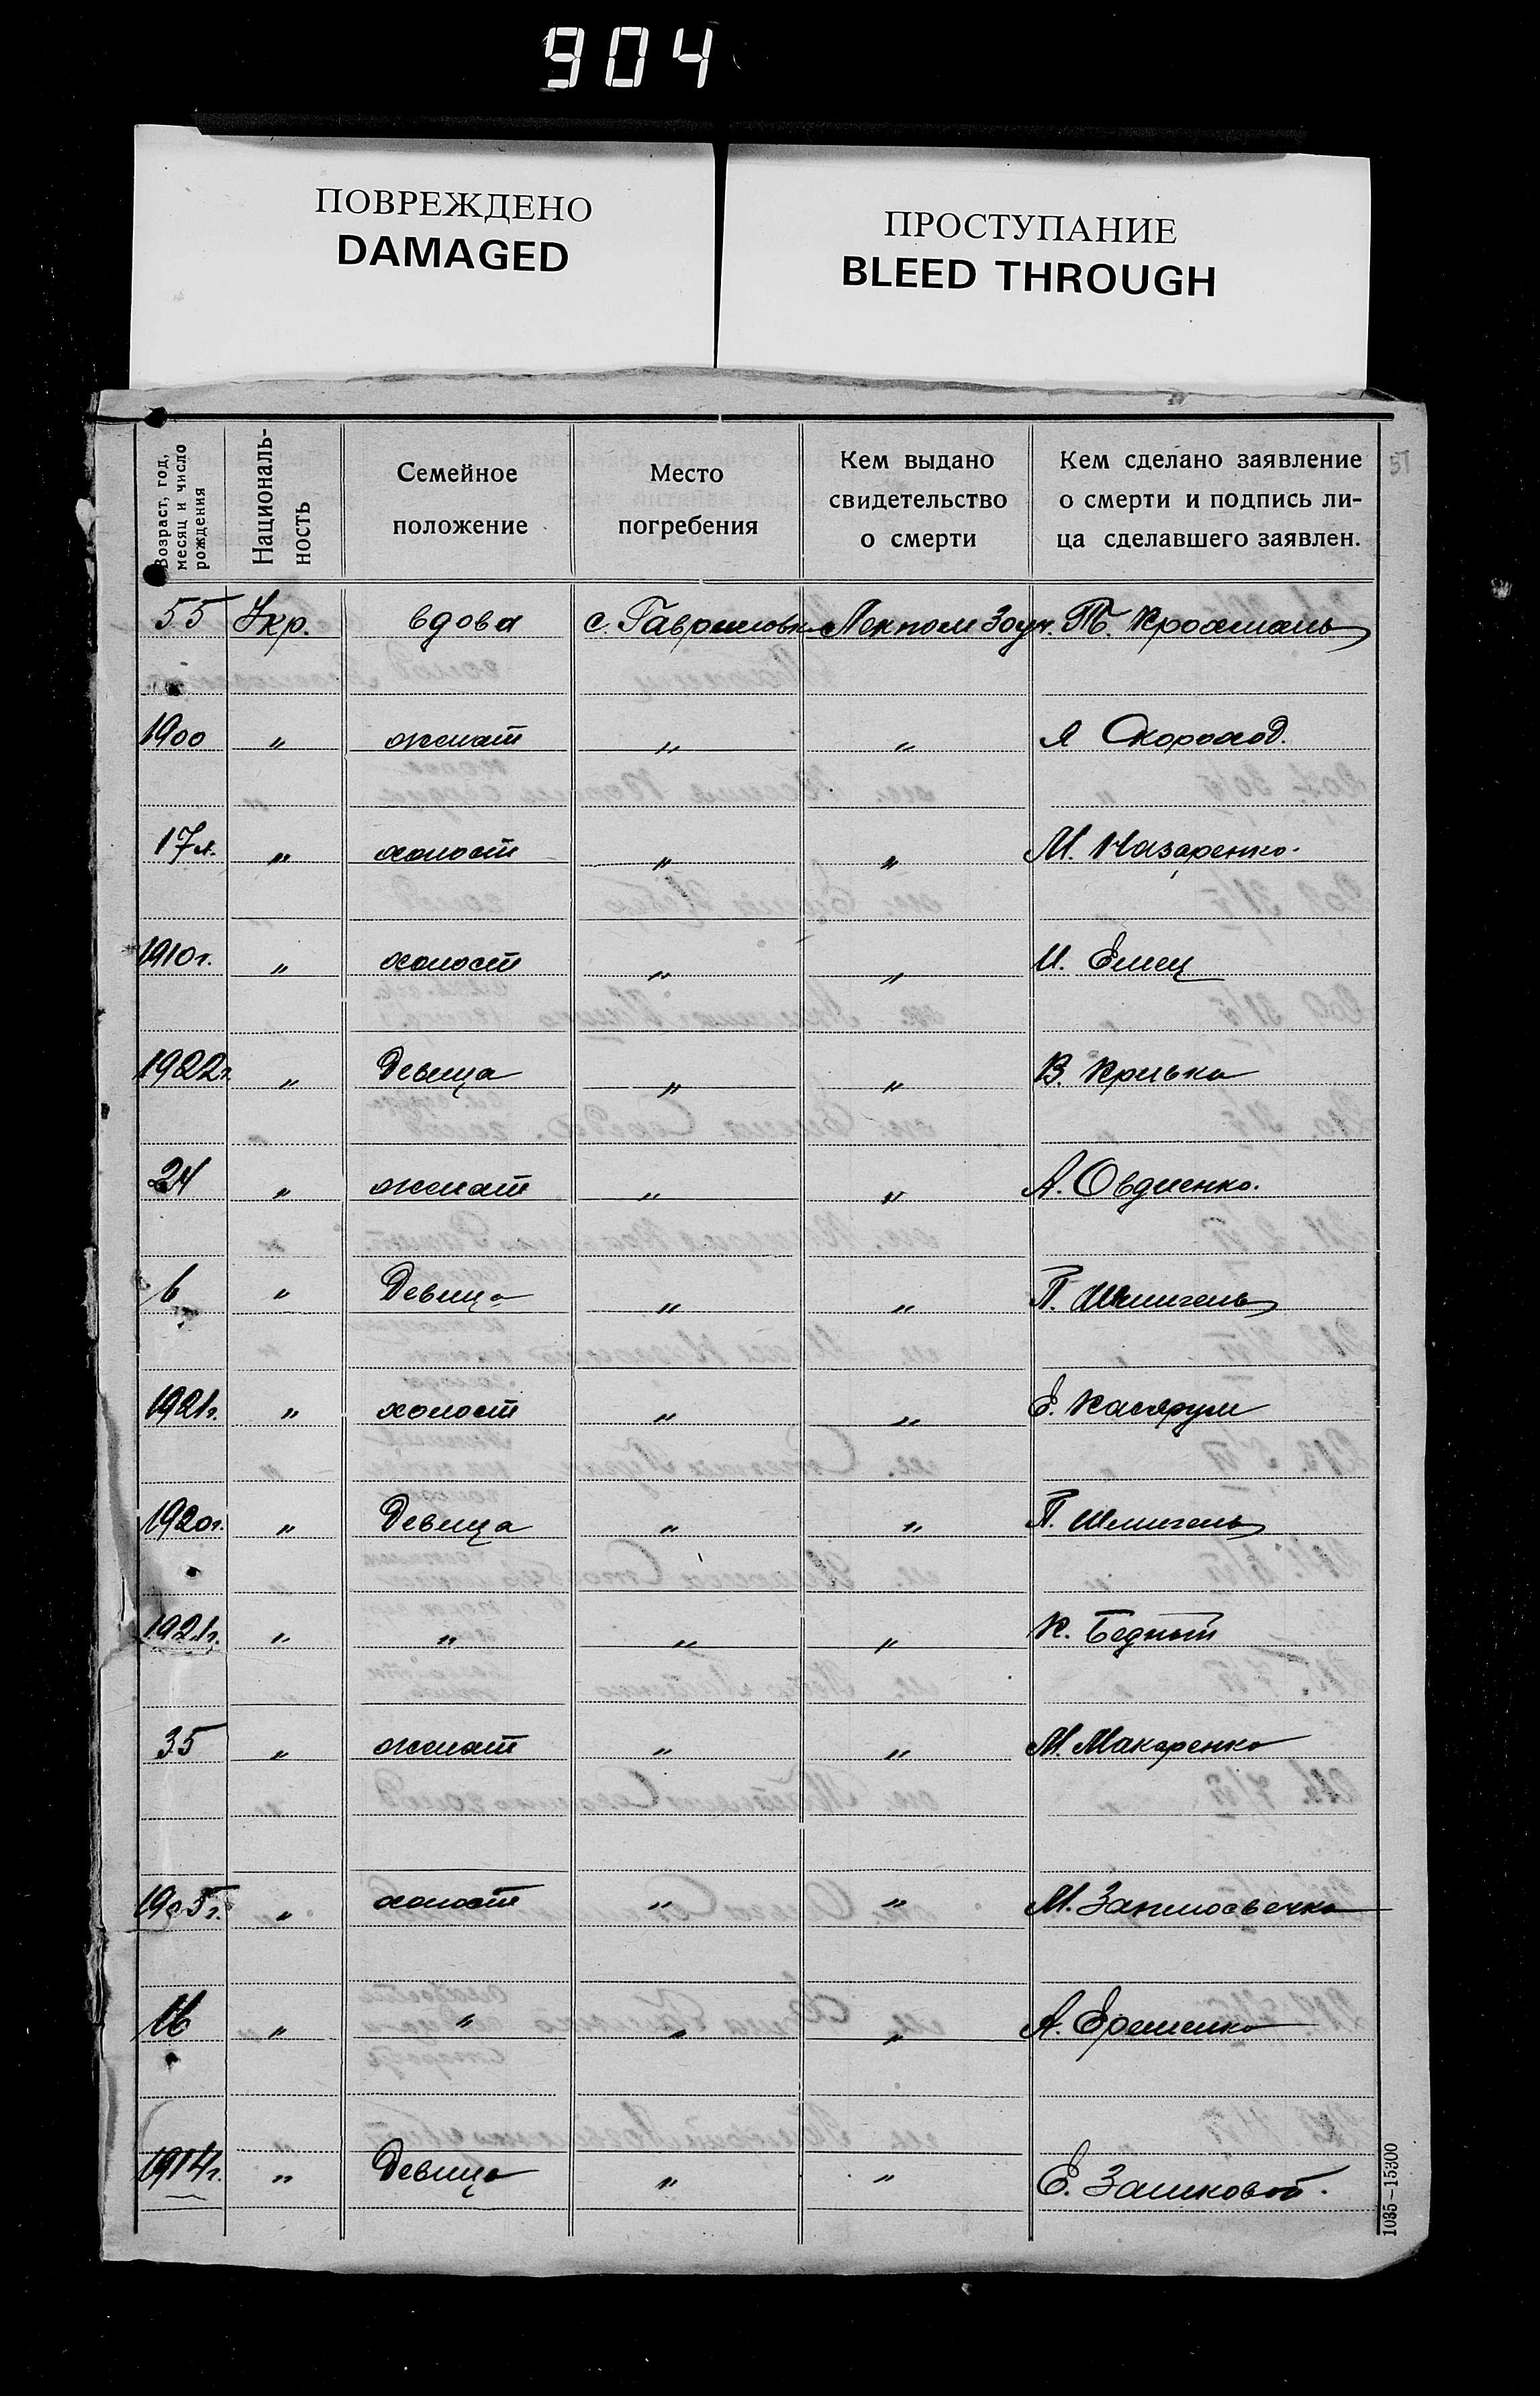 904
ПОВРЕЖДЕНО
DAMAGED
ПРОСТУПАНИЕ
BLEED THROUGH
Возраст, год, месяц и число рождения
Националь-
ность
Семейное
положение
Место
погребения
Кем выдано
свидетельство
о смерти
Кем сделано заявление
о смерти и подпись ли-
ца сделавшего заявлен.
55 Укр. вдова с. Гавриловк Лекпом 3 оуч. Крохмаль
1900 " женат " " Я Скороход.
17 л. " холост " " М. Назаренко.
1910 г. " холост " " И. Емец
1922 г. " Девица " " В. Кривка
24 " женат " " А. Овдиенко.
6 " Девица " " П. Шмигель
1921 г. " холост " " Е. Касярум
1920 г. " Девица " " П. Шмигель
1921 г. " " " " К. Бедный
35 " женат " " М. Макаренко
1905 г. " холост " " М.
16 " " " " А. Еременко
1914 г. " Девица " " Е.
1035–15300